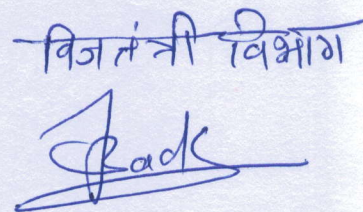 विजतंत्री विभाग